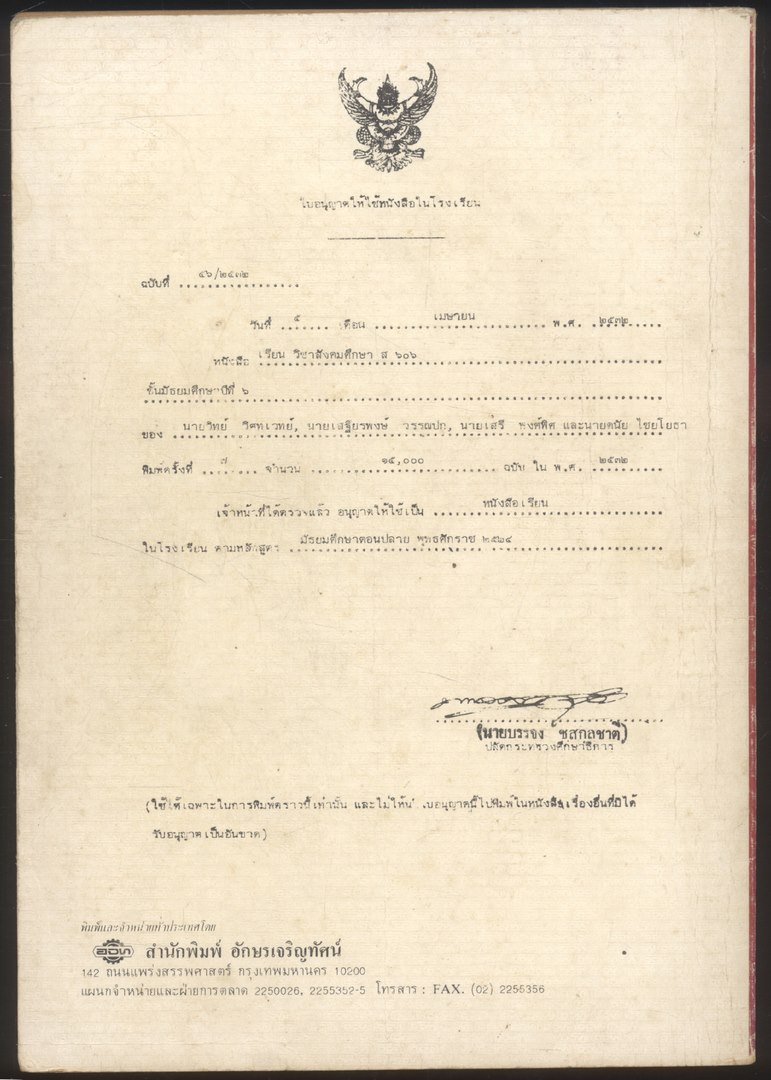 ใบอนุญาตให้ใช้หนังสือในโรงเรียน
ฉบับที่ ๔๖/๒๕๓๒
วันที่ ๕ เดือน เมษายน พ.ศ. ๒๕๓๒
หนังสือ เรียน วิชาสังคมศึกษา ส ๖๐๖
ชั้นมัธยมศึกษาปีที่ ๖
ของ นายวิทย์ วิศทเวทย์, นายเสฐียรพงษ์ วรรณปก, นายเสรี พงศ์พิศ และนายดนัย ไชยโยธา
พิมพ์ครั้งที่ ๗ จำนวน ๑๕,๐๐๐ ฉบับ ใน พ.ศ. ๒๕๓๒
เจ้าหน้าที่ได้ตรวจแล้ว อนุญาตให้ใช้เป็น หนังสือเรียน
ในโรงเรียน ตามหลักสูตร มัธยมศึกษาตอนปลาย พุทธศักราช ๒๕๒๔
(นายบรรจง ชูสกุลชาติ)
ปลัดกระทรวงศึกษาธิการ
(ใช้ได้เฉพาะในการพิมพ์คราวนี้เท่านั้น และไม่ให้นำใบอนุญาตนี้ไปพิมพ์ในหนังสือเรื่องอื่นที่มิได้
รับอนุญาตเป็นอันขาด)
พิมพ์และจำหน่ายทั่วประเทศโดย
อจท สำนักพิมพ์ อักษรเจริญทัศน์
142 ถนนแพร่งสรรพศาสตร์ กรุงเทพมหานคร 10200
แผนกจำหน่ายและฝ่ายการตลาด 2250026, 2255352-5 โทรสาร : FAX. (02) 2255356